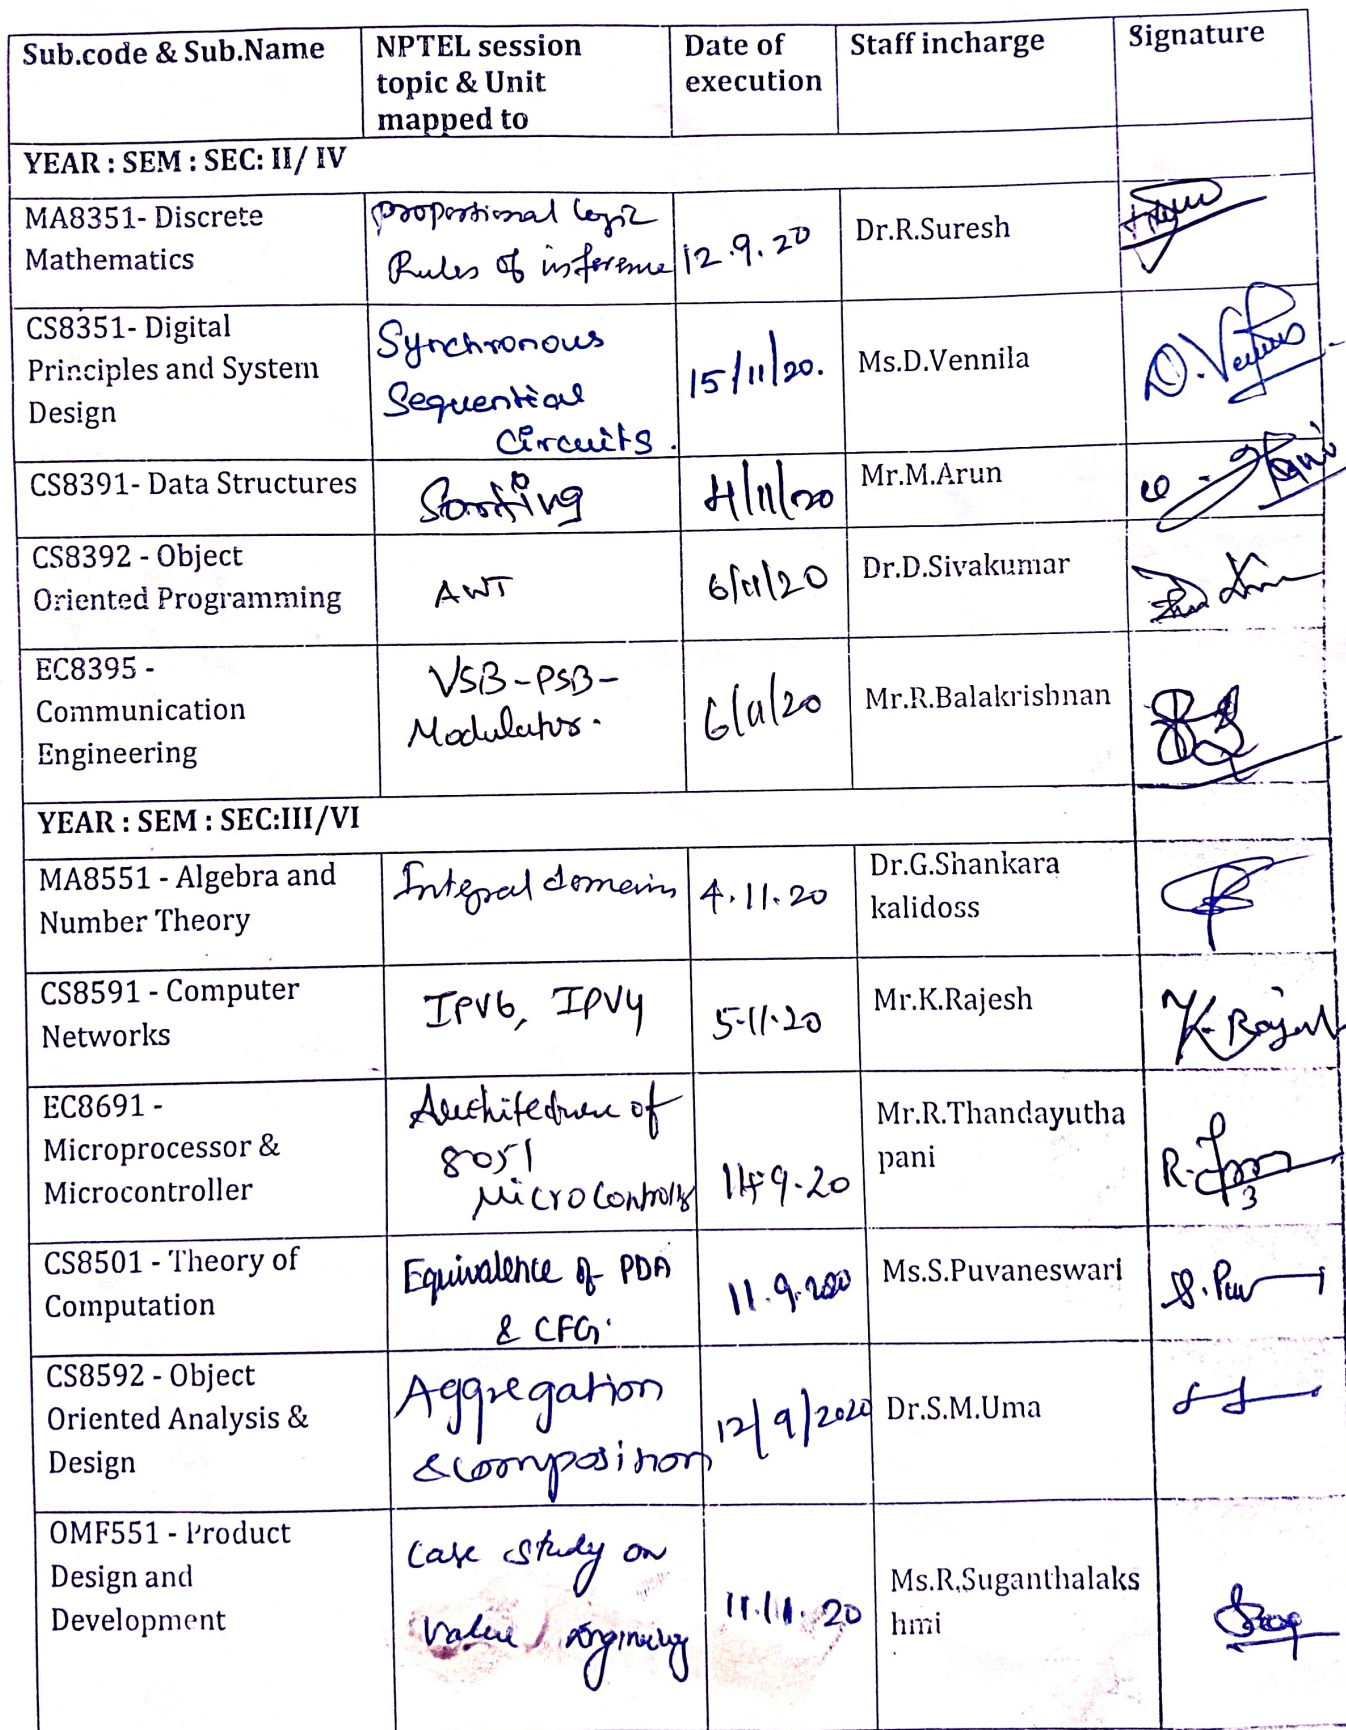 Sub.code & Sub.Name
NPTEL session
topic & Unit
mapped to
Date of
execution
Staff incharge
Signature
YEAR : SEM : SEC: II/ IV
MA8351- Discrete
Mathematics
Propositional logic
Rules of inference
12.9.20
Dr.R.Suresh
CS8351- Digital
Principles and System
Design
Synchronous
Sequential
Circuits.
15/11/20.
Ms.D.Vennila
CS8391- Data Structures
Sorting
4/11/20
Mr.M.Arun
CS8392 - Object
Oriented Programming
AWT
6/11/20
Dr.D.Sivakumar
EC8395 -
Communication
Engineering
VSB-PSB-
Modulators.
6/11/20
Mr.R.Balakrishnan
YEAR : SEM : SEC:III/VI
MA8551 - Algebra and
Number Theory
Integral domains
4.11.20
Dr.G.Shankara
kalidoss
CS8591 - Computer
Networks
IPV6, IPV4
5.11.20
Mr.K.Rajesh
K. Rajesh
EC8691 -
Microprocessor &
Microcontroller
Architecture of
8051
Microcontroller
9.20
Mr.R.Thandayutha
pani
CS8501 - Theory of
Computation
Equivalence of PDA
& CFG.
11.9.2020
Ms.S.Puvaneswari
CS8592 - Object
Oriented Analysis &
Design
Aggregation
& composition
12/9/2020
Dr.S.M.Uma
OMF551 - Product
Design and
Development
Case study on
Value
11.11.20
Ms.R.Suganthalaks
hmi